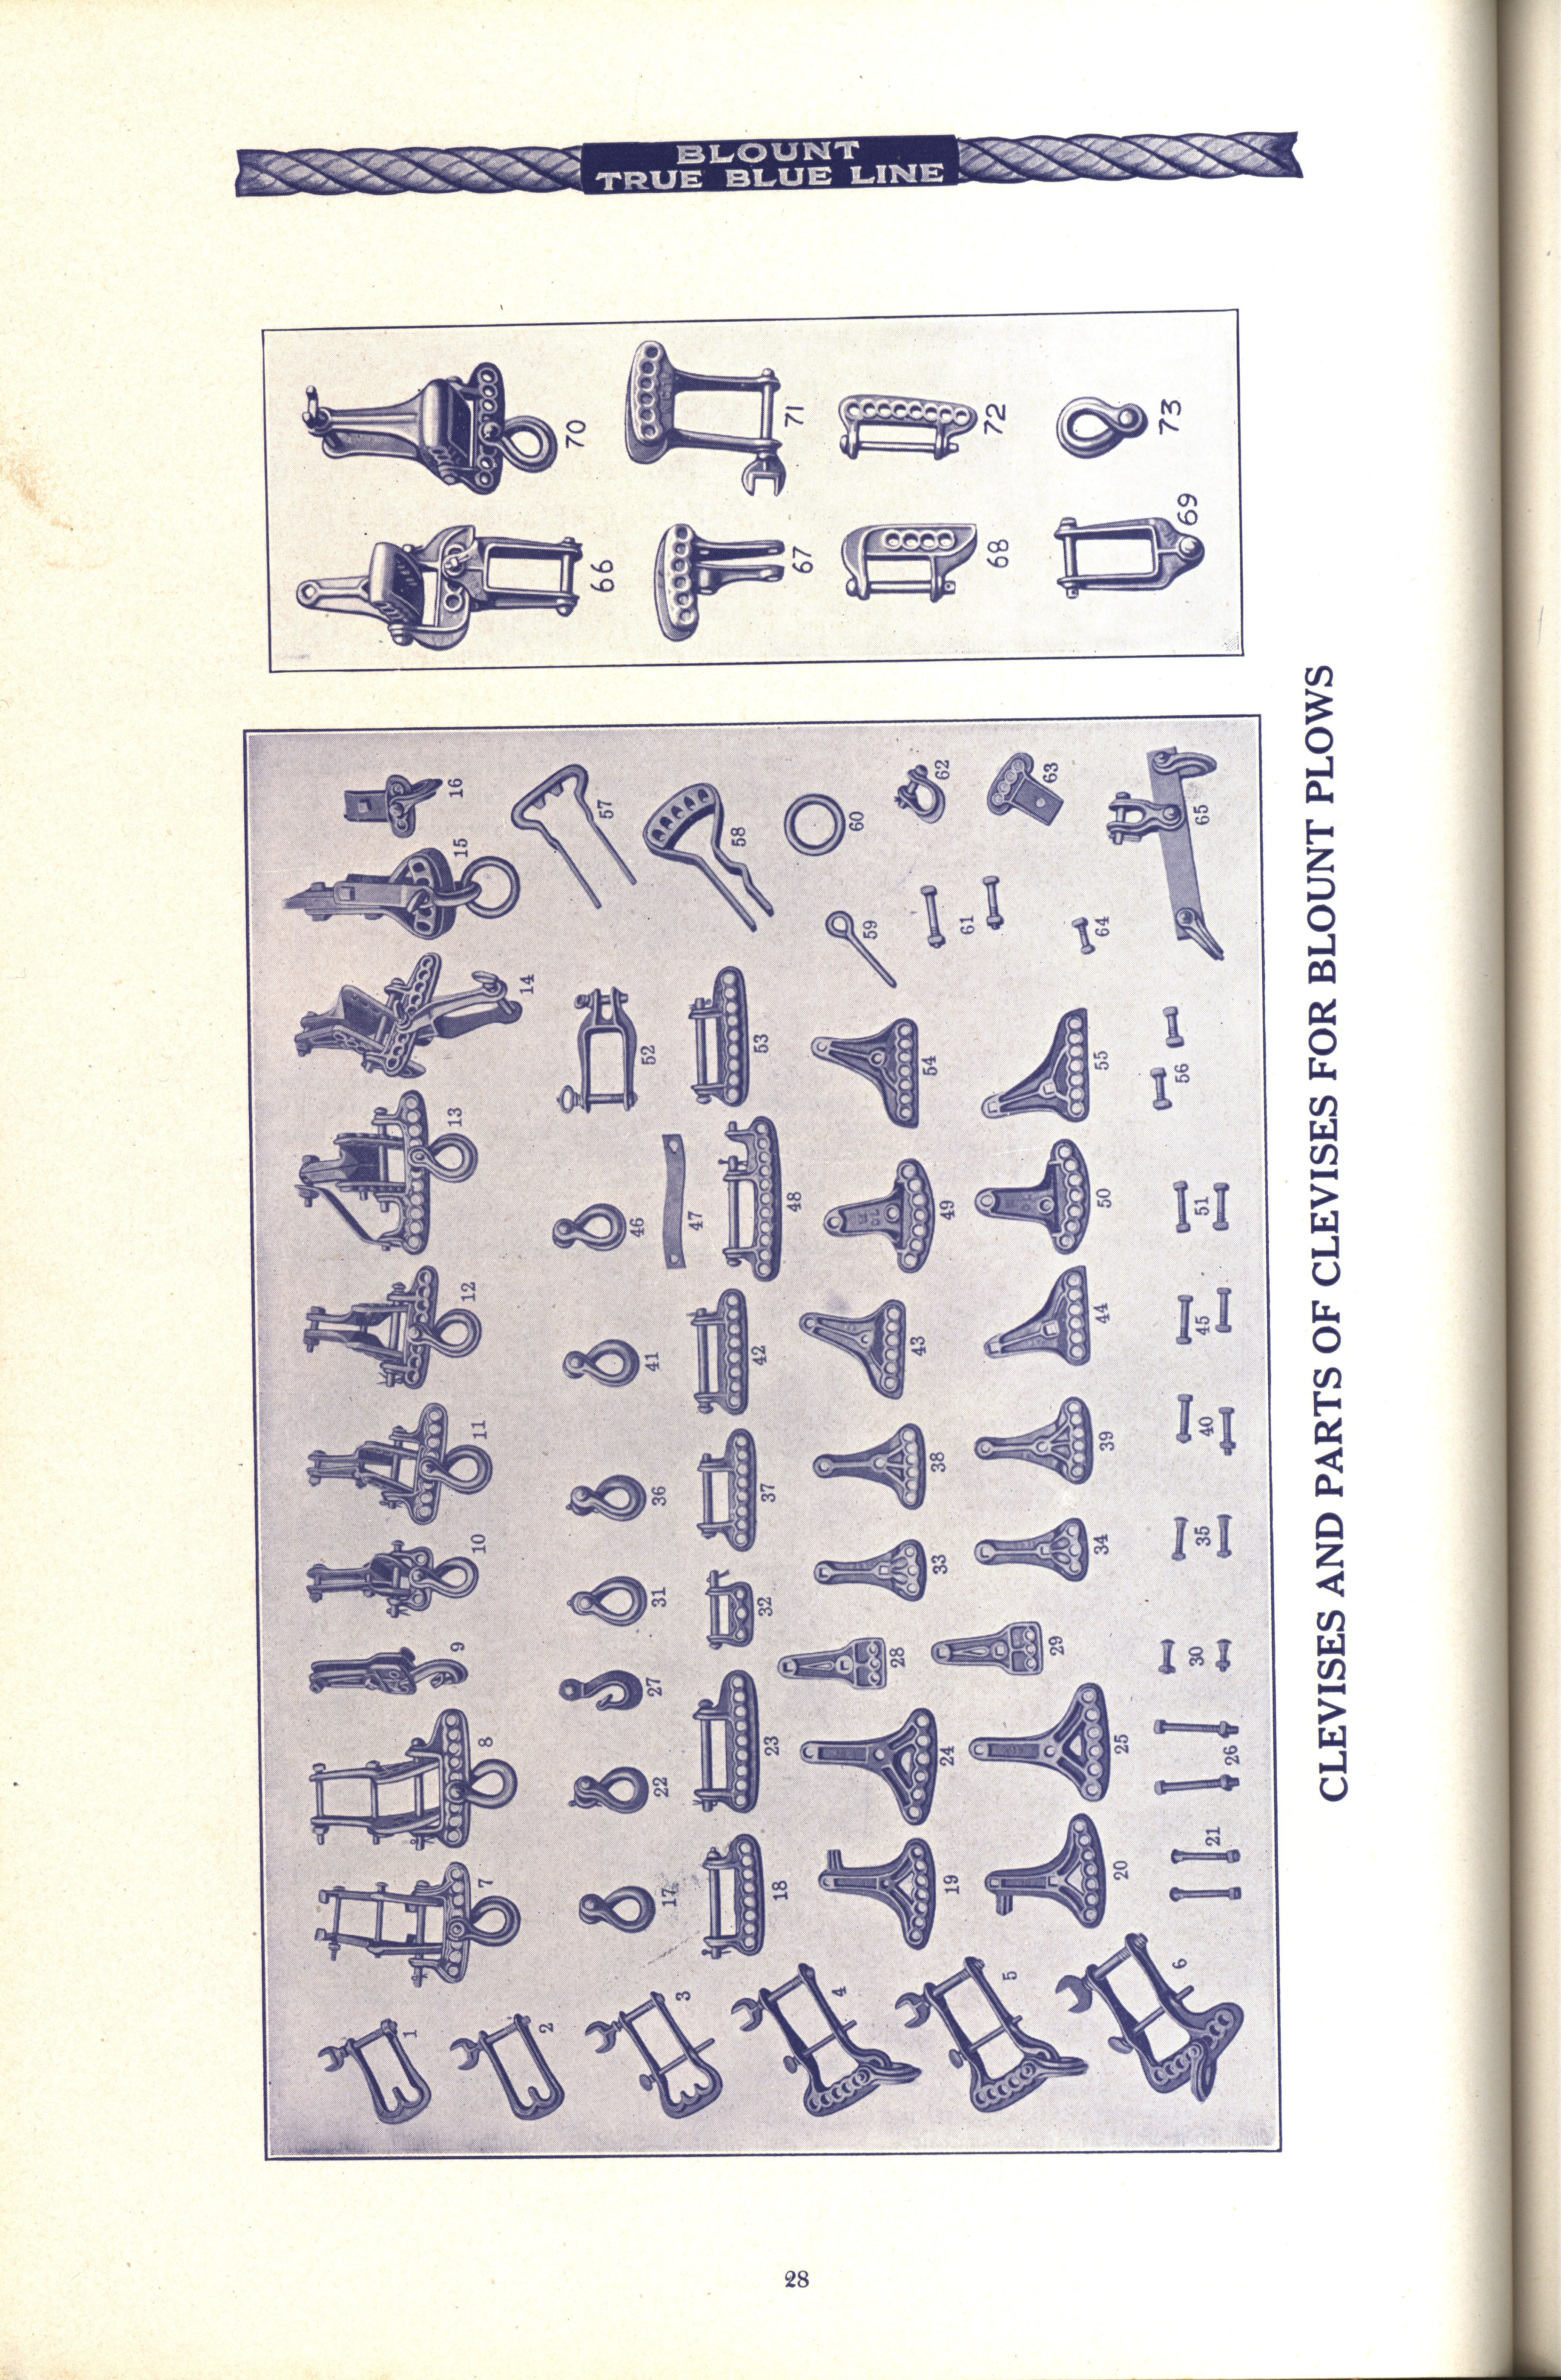 BLOUNT
TRUE BLUE LINE
70
71
72
73
66
67
68
69
16
15
14
13
12
11
10
9
8
7
57
58
60
62
63
65
59
61
64
52
53
54
55
56
46
47
48
49
50
51
41
42
43
44
45
36
37
38
39
40
31
32
33
34
35
27
28
29
30
22
23
24
25
26
17
18
19
20
21
1
2
3
4
5
6
CLEVISES AND PARTS OF CLEVISES FOR BLOUNT PLOWS
28